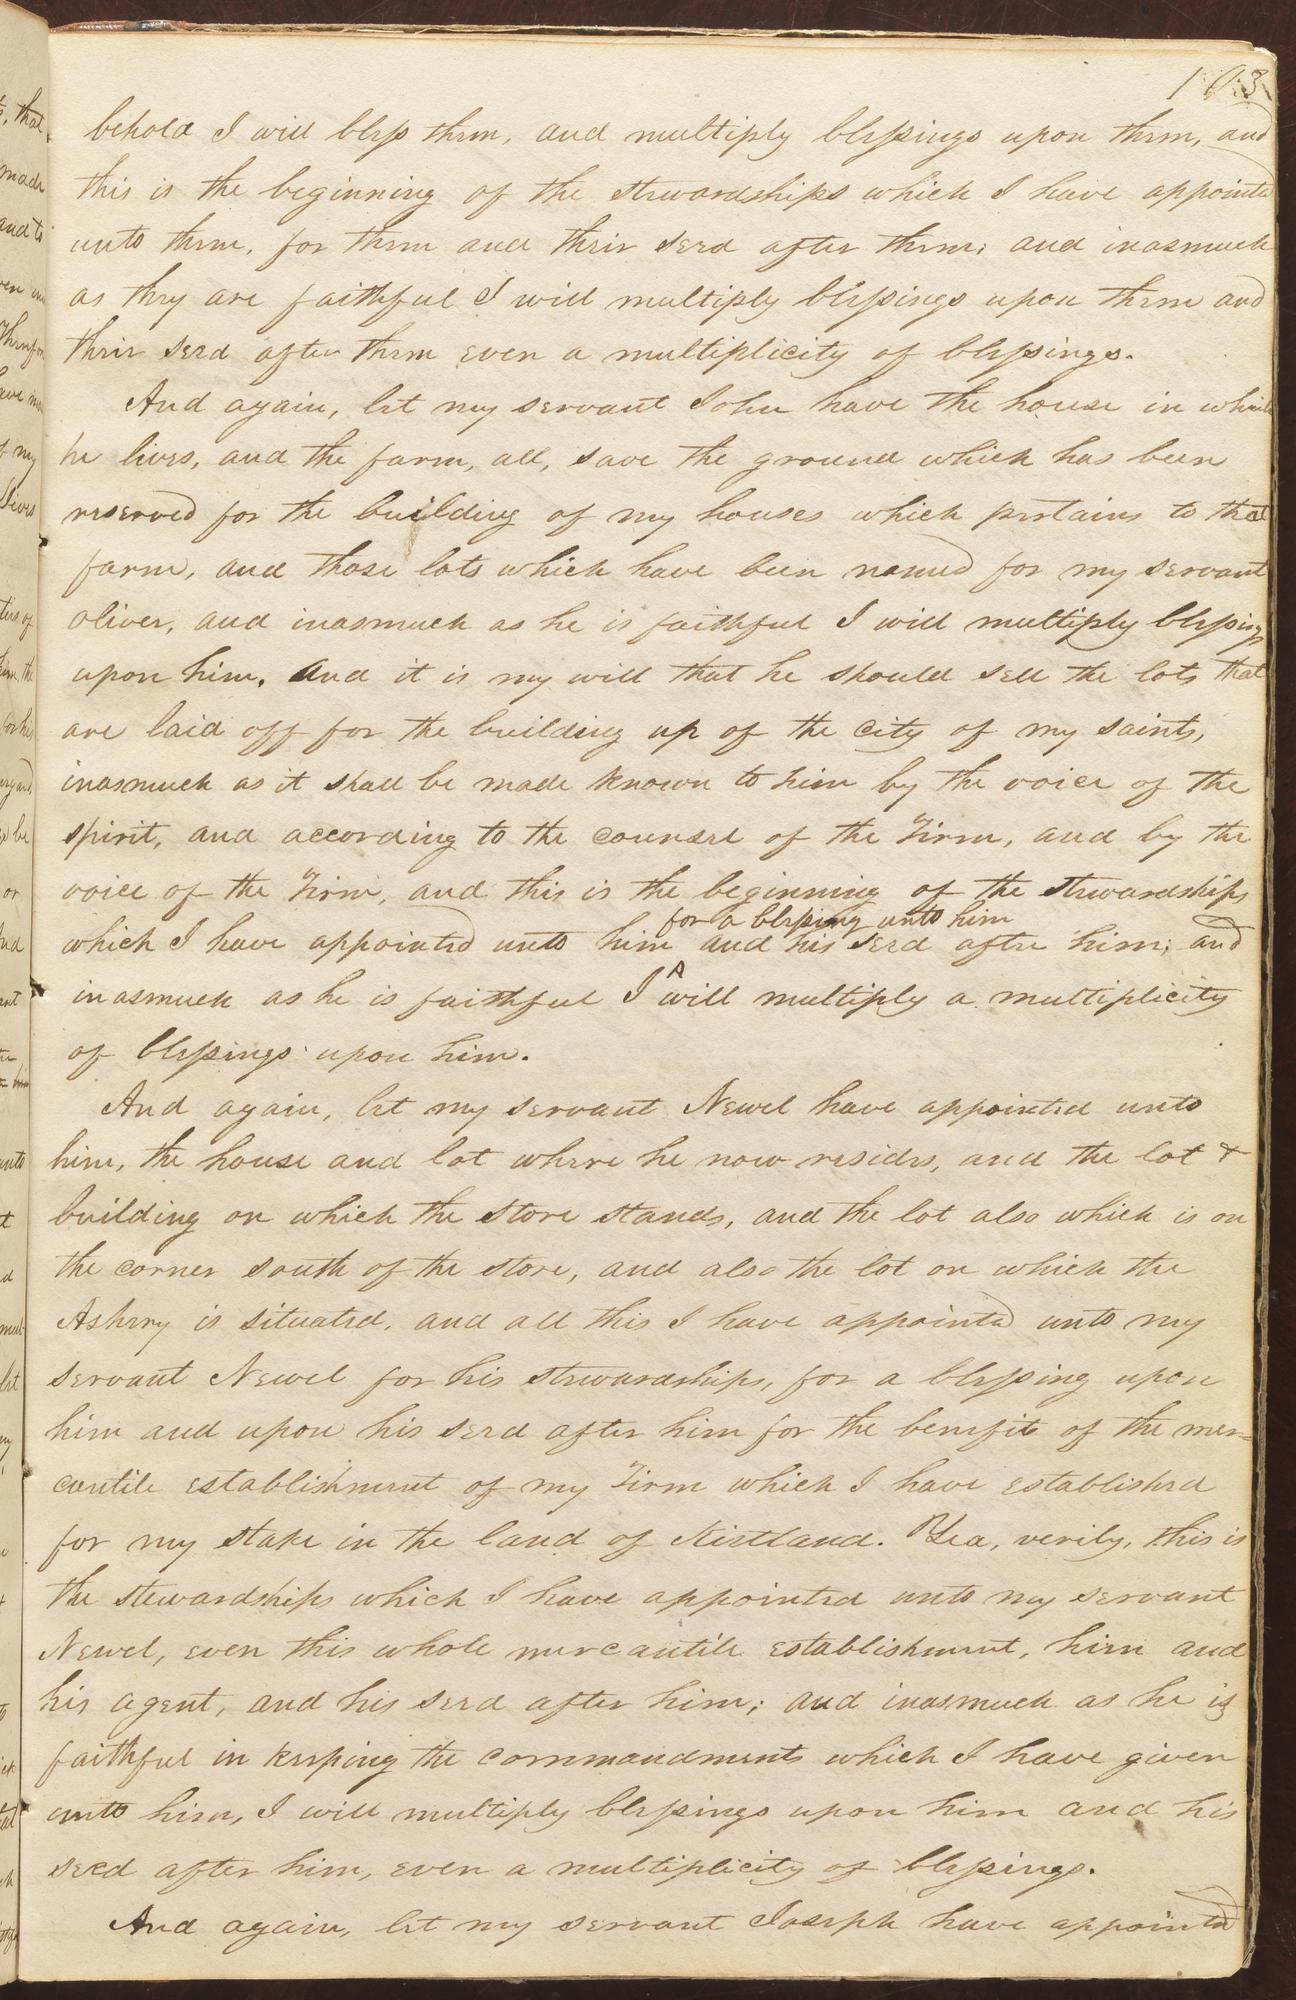 103
behold I will bless them, and multiply blessings upon them, and
this is the beginning of the stewardships which I have appointed
unto them, for them and their seed after them; and inasmuch
as they are faithful I will multiply blessings upon them and
their seed after them even a multiplicity of blessings.
And again, let my servant John have the house in which
he lives, and the farm, all, save the ground which has been
reserved for the building of my houses which pertains to that
farm, and those lots which have been named for my servant
oliver, and inasmuch as he is faithful I will multiply blessings
upon him. And it is my will that he should sell the lots that
are laid off for the building up of the city of my saints,
inasmuch as it shall be made known to him by the voice of the
spirit, and according to the counsel of the Firm, and by the
voice of the Firm, and this is the beginning of the stewardships
for a blessing unto him
which I have appointed unto him and his seed after him; and
inasmuch as he is faithful I will multiply a multiplicity
of blessings upon him.
And again, let my servant Newel have appointed unto
him, the house and lot where he now resides, and the lot &
building on which the store stands, and the lot also which is on
the corner south of the store, and also the lot on which the
Ashery is situated, and all this I have appointed unto my
servant Newel for his stewardships, for a blessing upon
him and upon his seed after him for the benefit of the mer=
cantile establishment of my Firm which I have established
for my stake in the land of Kirtland. Yea, verily, this is
the stewardships which I have appointed unto my servant
Newel, even this whole mercantile establishment, him and
his agent, and his seed after him; and inasmuch as he is
faithful in keeping the commandments which I have given
unto him, I will multiply blessings upon him and his
seed after him, even a multiplicity of blessings.
And again, let my servant Joseph have appointed